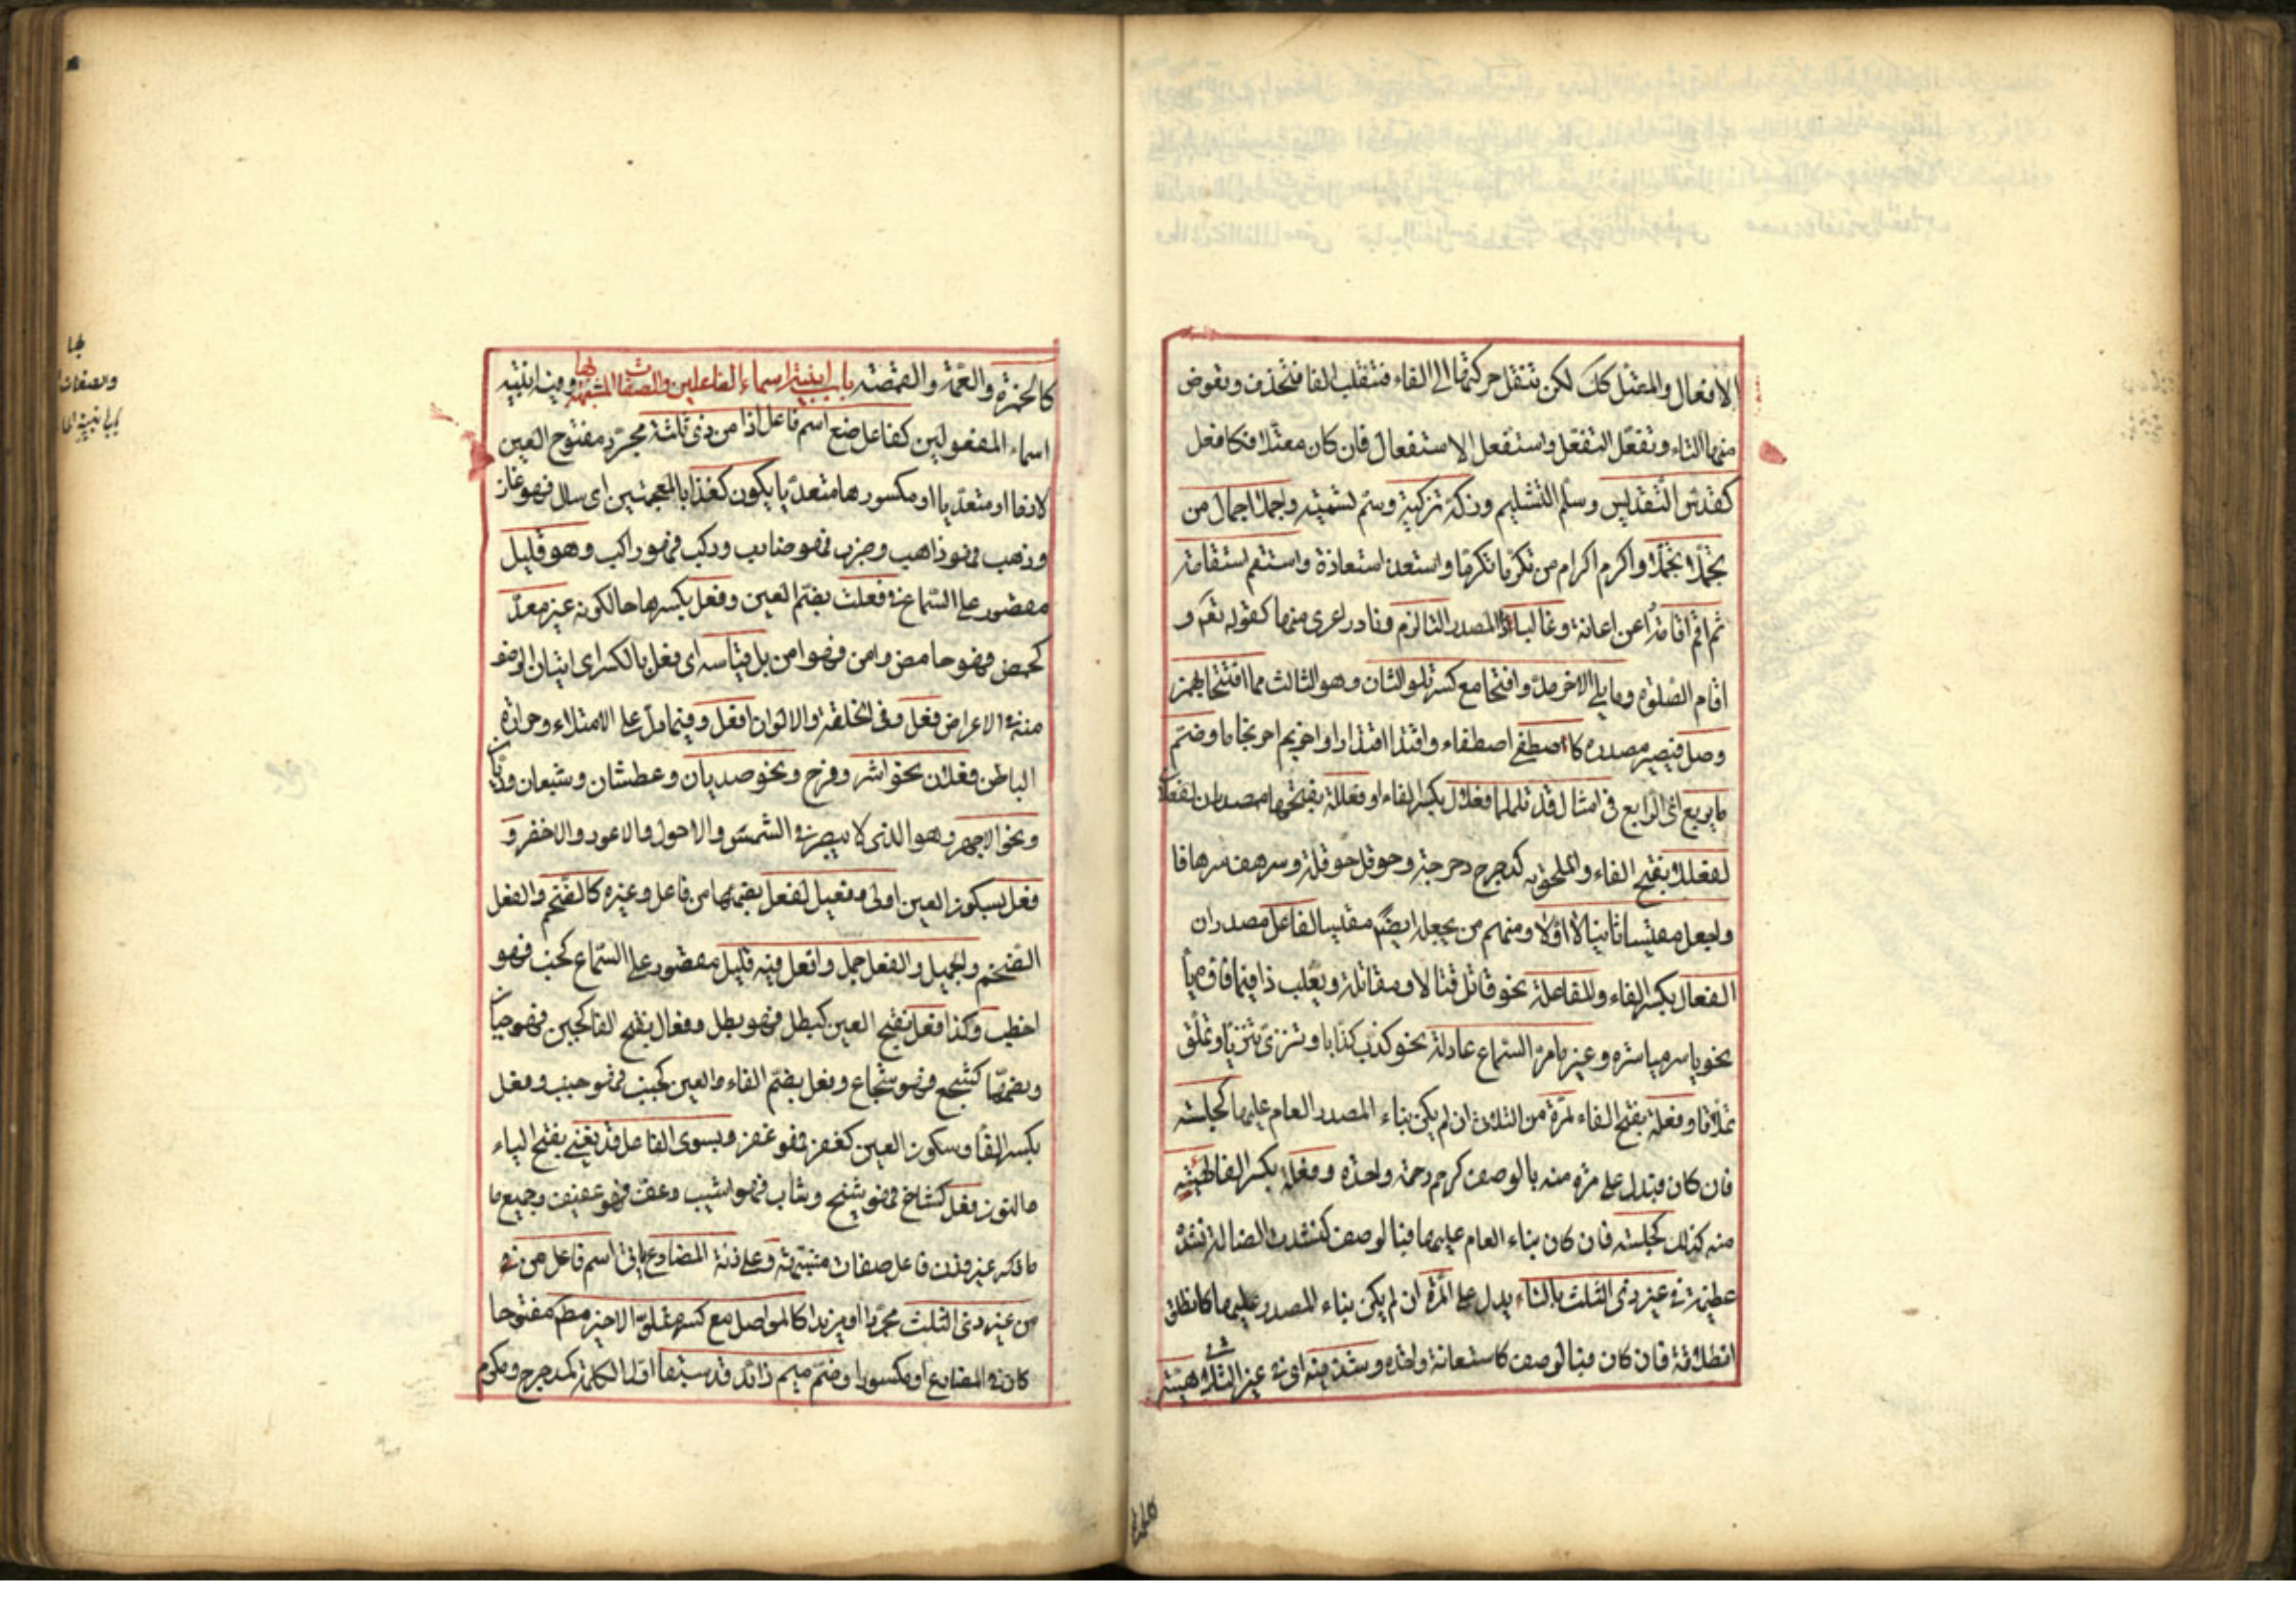 الافعال والمعتل كك لكن تنقل حركتها الى الفاء فتنقلب الفا فتحذف وتعوض
منها التاء وتفعّل التفعّل واستفعل الاستفعال فان كان معتلا فكافعل
كقدّس التّقديس وسلّم التسليم وزكّه تزكية وسمّ تسمية واجملا اجمال من
تجمّلا تجمّلا واكرم اكرام من تكرّما تكرّما واستعذ استعاذة واستقم استقامة
ثم اقم اقامة اعن اعانة وغالبا ذا المصدر التا لزم ونادر اعرى منها كقوله تعم و
اقام الصلوة وما يلى الاخر مدّ وافتحا مع كسر تلو الثان وهو الثالث مما افتتحا بهمز
وصل فيصير مصدره كاصطفى اصطفاء واقتدا اقتدارا واحرنجم احرنجاما وضمّ
ما يربع اى الرابع فى امثال قد تلملما فعلال بكسر الفاء او فعللة بفتحها مصدران لفعلل
لفعللا بفتح الفاء والملحق به كدحرج دحرجة وحوقل حوقلة وسرهف سرهافا
واجعل مقيسا ثانيا لا اوّلا ومنهم من يجعله ايضا مقيسا لفاعل مصدران
الفعال بكسر الفاء والمفاعلة نحو قاتل قتالا ومقاتلة ويغلب ذا فيما فاؤه يأ
نحو ياسر مياسرة وغير ما مرّ السّماع عادله نحو كذب كذّابا وتنزّى تنزيّا وتملّق
تملّاقا وفعلة بفتح الفاء لمرّة من الثلاث ان لم يكن بناء المصدر العام عليها كجلسه
فان كان فيدل على مرّة منه بالوصف كرحم رحمة واحدة وفعلة بكسر الفا لهيئه
منه كذلك كجلسه فان كان بناء العام عليها فبالوصف كنشدت الضالة نشدة
عظيمة فى غير ذى الثلث بالتاء يدل على المرّة ان لم يكن بناء المصدر عليها كانطلق
انطلاقة فان كان فبالوصف كاستعانة واحدة وشذ فيه اى فى غير الثلاثى هيئة
كالخمرة والعمّة والقمصة باب ابنية اسماء الفاعلين والصفات المشبهة بها وفيه ابنية
اسماء المفعولين كفاعل صغ اسم فاعل اذا من ذى ثلثة مجرّد مفتوح العين
لازما او متعدّيا او مكسورها متعدّيا يكون كغذا بالمعجمتين اى سال فهو غاز
وذهب فهو ذاهب وضرب فهو ضارب وركب فهو راكب وهو قليل
مقصور على السّماع فى فعلت بضمّ العين وفعل بكسرها حال كونه غير معدّ
كحمض فهو حامض وامن فهو امن بل قياسه اى فعل بالكسر اى اتيان الوصف
منه فى الاعراض فعل وفى الخلقة والالوان افعل وفيما دلّ على الامتلاء وحرارة
الباطن فعلان نحو اشر وفرح ونحو صديان وعطشان وشبعان وريّان
ونحو الاجهر وهو الذى لا يبصر فى الشمس والاحول والاعور والاخضر و
فعل بسكون العين اولى وفعيل لفعل بضمها من فاعل وغيره كالضّخم والفعل
الضّخم والجميل والفعل جمل وافعل فيه قليل مقصور على السّماع كخطب فهو
اخطب وكذا فعل بفتح العين كبطل فهو بطل وفعال بفتح الفا كجبن فهو جبان
وبضمّها كشجع فهو شجاع وفعل بضمّ الفاء والعين كجنب فهو جنب وفعل
بكسر الفا وسكون العين كعفر فهو عفر وبسوى الفاعل قد يغنى بفتح الياء
والنون فعل كشاخ فهو شيخ وشاب فهو اشيب وعفّ فهو عفيف وجميع ما
ما ذكر غير وزن فاعل صفات مشبّهة وعلى زنة المضارع ياتى اسم فاعل من
من غير ذى الثلث مجرّدا او مزيدا كالمواصل مع كسر متلوّ الاخير مطم مفتوحا
كان فى المضارع او مكسورا وضمّ ميم زائد قد سبقا اول الكلمة كمدحرج ومكرم
بها
والصفات